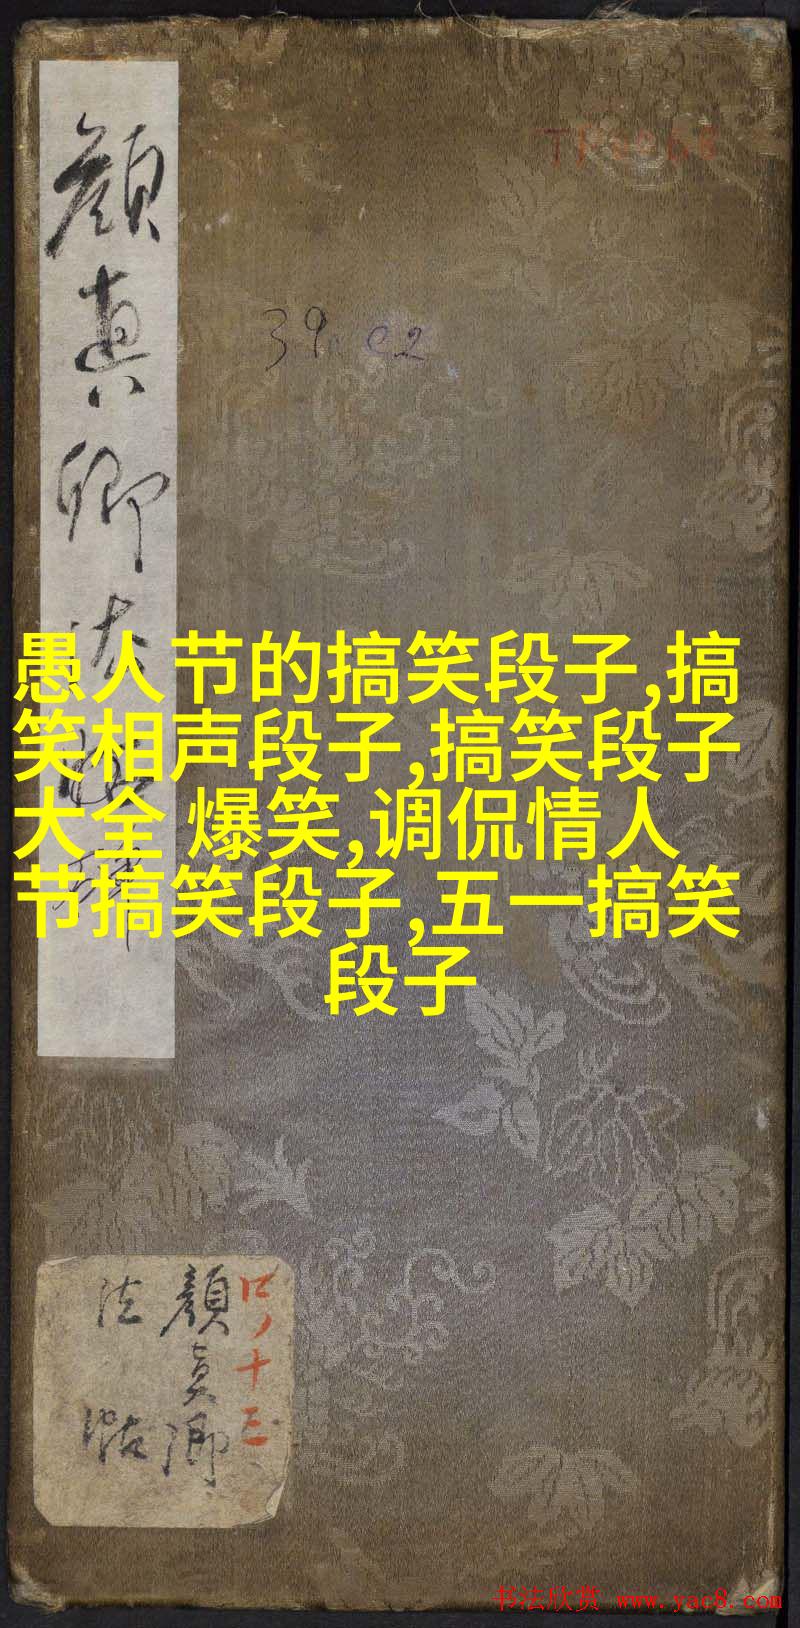 顔真卿法帖
TP2268
39.c2
愚人节的搞笑段子,搞
笑相声段子,搞笑段子
大全 爆笑,调侃情人
节搞笑段子,五一搞笑
段子
口ノ十三
顔真卿
法帖
书法欣赏 www.yac8.com